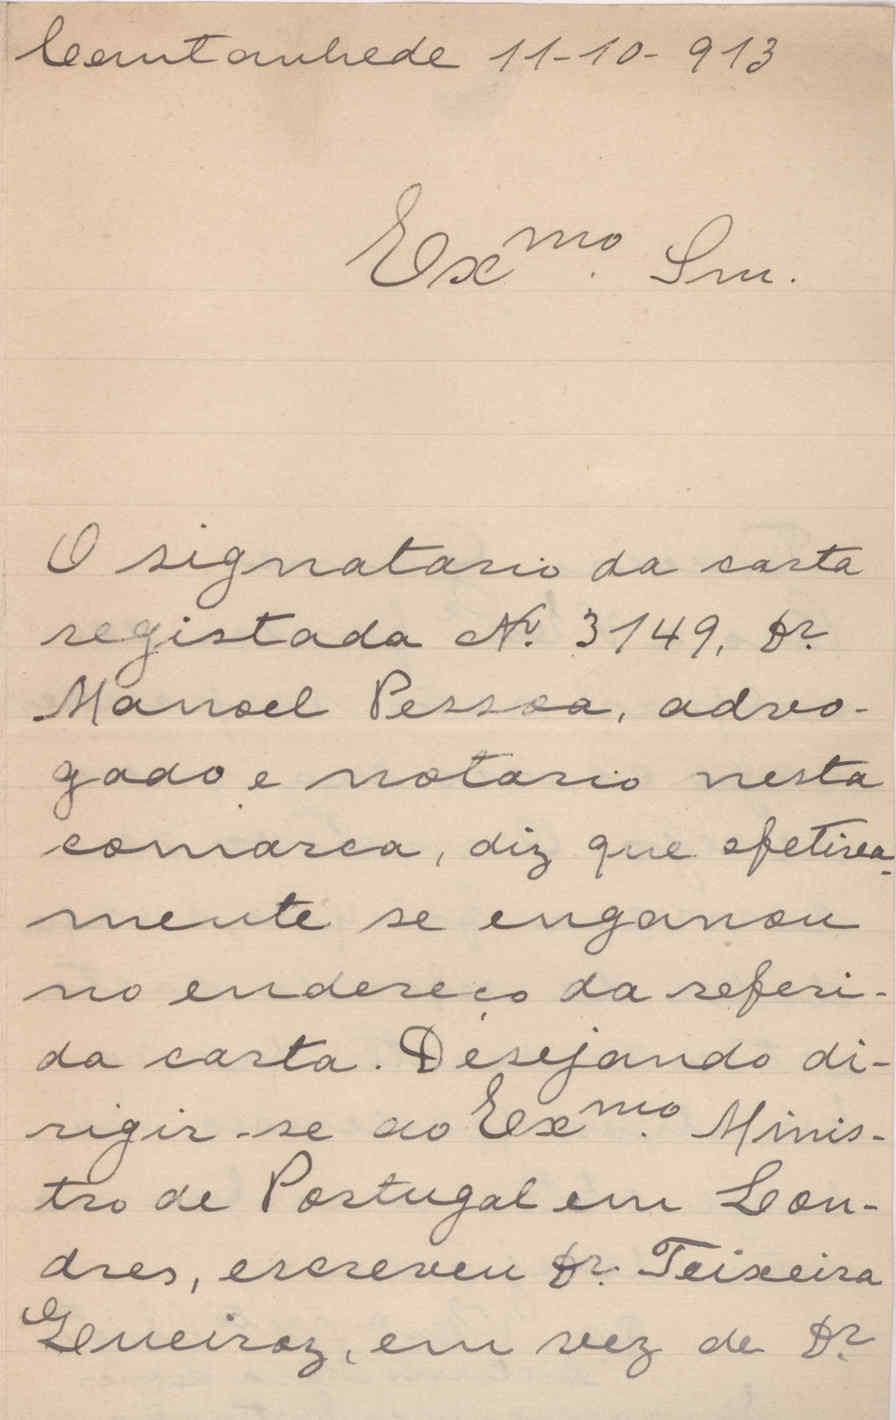 Cantanhede 11-10-913
Ex.mo Snr.
O signatario da carta
registada Nº. 3149, Dr.
Manoel Pessoa, advo-
gado e notario nesta
comarca, diz que efetiva-
mente se enganou
no endereço da referi-
da carta. Desejando di-
rigir-se ao Ex.mo Minis-
tro de Portugal em Lon-
dres, escreveu Dr. Teixeira
Queiroz, em vez de Dr.